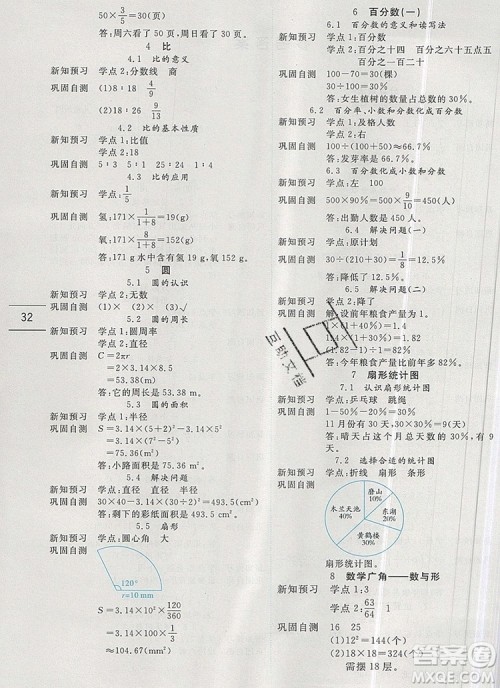 50×3/5=30(页)
答:周六看了50页,周日看了30页。
4 比
4.1 比的意义
新知预习 学点2:分数线 商
巩固自测 (1)8∶18 4/9
(2)18∶26 9/13
4.2 比的基本性质
新知预习 学点2:18
巩固自测 5∶3 5∶1 25∶4 1∶1
4.3 比的应用
新知预习 学点:1/5
巩固自测 氢:171×1/(1+8)=19(g)
氧:171×8/(1+8)=152(g)
答:171 g水中含有氢19 g,氧152 g。
5 圆
5.1 圆的认识
新知预习 学点2:无数
巩固自测 (1)× (2)× (3)√
5.2 圆的周长
新知预习 学点1:圆周率
学点2:直径
巩固自测 C=2πr
=2×3.14×8.5
=53.38(m)
答:它的周长是53.38 m。
5.3 圆的面积
新知预习 学点1:半径
巩固自测 S=3.14×(5+2)²-3.14×5²
=3.14×(7²-5²)
=75.36(m²)
答:小路面积是75.36 m²。
5.4 解决问题
新知预习 学点:直径 直径 半径
巩固自测 30×40-3.14×(30÷2)²=493.5(cm²)
答:剩下的彩纸面积是493.5 cm²。
5.5 扇形
新知预习 学点:圆心角 大
巩固自测
120°
r=10 mm
S=3.14×10²×120/360
=3.14×10²×1/3
≈104.67(mm²)
32
6 百分数(一)
6.1 百分数的意义和读写法
新知预习 学点2:百分之十四 百分之六十五点五
百分之一百二十
巩固自测 100-70=30(棵)
30÷100=30%
答:女生植树的数量占总数的30%。
6.2 百分率、小数和分数化成百分数
新知预习 学点1:及格人数
学点2:右
巩固自测 100÷(100+50)≈66.7%
答:发芽率是66.7%。
6.3 百分数化成小数和分数
新知预习 学点:左 100
巩固自测 500×90%=500×0.9=450(人)
答:出勤人数是450人。
6.4 解决问题(一)
新知预习 学点:原计划
巩固自测 30÷(210+30)=12.5%
答:降低了12.5%。
6.5 解决问题(二)
新知预习 学点2:降了
巩固自测 解:设前年粮食产量是1。
1×(1+64%)=1.64
1.64×(1+
1.4
(1.82-1)÷1=82%
答:今年粮食产量比前年多82%。
7 扇形统计图
7.1 认识扇形统计图
新知预习 学点:乒乓球 跳绳
巩固自测 1-50%-20%=30%
11月份有30天 30×30%=9(天)
答:晴天占这个月总天数的30%,有9天。
7.2 选择合适的统计图
新知预习 学点:折线 扇形 条形
巩固自测
磨山
10%
木兰天池
40%
东湖
20%
黄鹤楼
30%
扇形统计图。
8 数学广角——数与形
新知预习 学点1:3
学点2:63/64 1
巩固自测 16 25
(1)12²=144(个)
(2)18×18=324(个)
需摆18层。
互助文档
答案圈
MXQE.COM